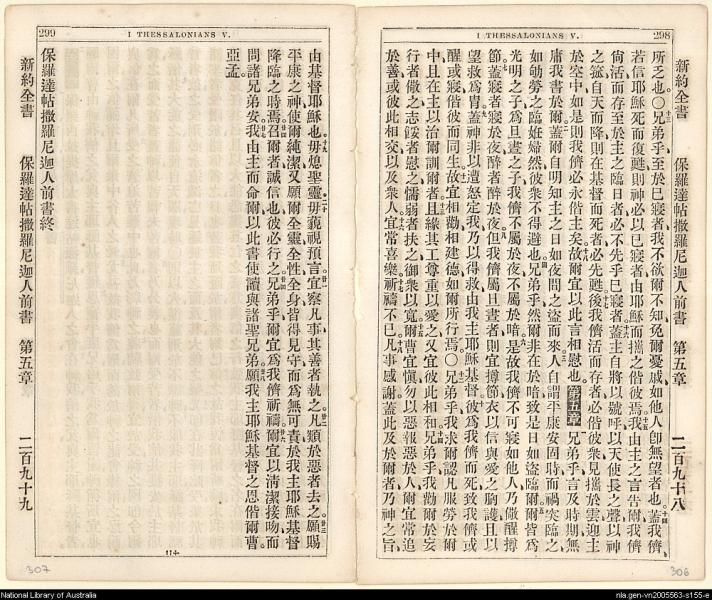 298
I THESSALONIANS V.
新約全書 保羅達帖撒羅尼迦人前書 第五章 二百九十八
所乏也〇兄弟乎至於已寢者我不欲爾不知免爾憂戚如他人卽無望者也蓋我儕
若信耶穌死而復甦則神必以已寢者由耶穌而攜之偕彼焉我由主之言告爾我儕
尙活而存至於主之臨日者必不先乎已寢者蓋主自將以號呼以天使長之聲以神
之箛自天而降則在基督而死者必先甦後我儕活而存者必偕彼衆見攜於雲迎主
於空中如是則我儕必永偕主矣故爾宜以此言相慰也第五章兄弟乎言及時期無
庸我書於爾蓋爾自明知主之日如夜間之盜而來人自謂平康安固時而禍突臨之
如劬勞之臨姙婦然彼衆不得避也兄弟乎然爾非在於暗致是日如盜臨爾爾皆爲
光明之子爲旦晝之子我儕不屬於夜不屬於暗是故我儕不可寢如他人乃儆醒撙
節蓋寢者寢於夜醉者醉於夜但我儕屬旦晝者則宜撙節衣以信與愛之胸護且以
望救爲胄蓋神非以遭怒定我乃以得救由我主耶穌基督彼爲我儕而死致我儕或
醒或寢偕彼而同生故宜相勸相建德如爾所行焉〇兄弟乎我求爾認凡服勞於爾
中且在主以治爾訓爾者且緣其工尊重以愛之又宜彼此相和兄弟乎我勸爾於妄
行者儆之志餒者慰之懦弱者扶之御衆以寬爾曹宜愼勿以惡報惡於人爾宜常追
於善或彼此相交以及衆人宜常喜樂祈禱不已凡事感謝蓋此及於爾者乃神之旨
306
299
I THESSALONIANS V.
由基督耶穌也毋熄聖靈毋藐視預言宜察凡事其善者執之凡類於惡者去之願賜
平康之神使爾純潔又願爾全靈全性全身皆得見守而爲無可責於我主耶穌基督
降臨之時焉召爾者誠信也彼必行之兄弟乎爾宜爲我儕祈禱爾宜以清潔接吻而
問諸兄弟安我由主而命爾以此書使讀與諸聖兄弟願我主耶穌基督之恩偕爾曹
亞孟
保羅達帖撒羅尼迦人前書終
新約全書 保羅達帖撒羅尼迦人前書 第五章 二百九十九
307
National Library of Australia
nla.gen-vn2005563-s155-e